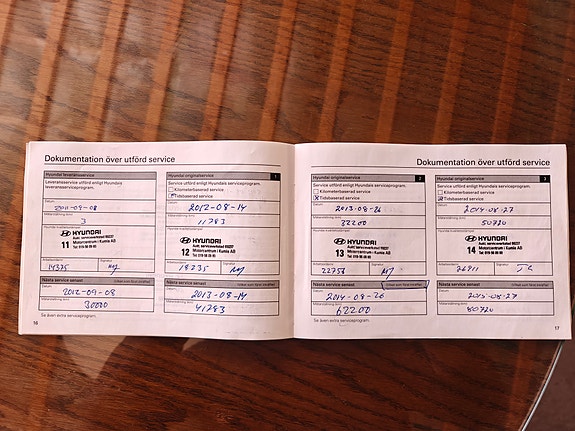 Dokumentation över utförd service
Hyundai leveransservice
Leveransservice utförd enligt Hyundais
leveransserviceprogram.
Datum
2011-09-08
Mätarställning (km)
3
HYUNDAI
11
Motorcentrum i Kumla AB
Arbetsordernr
Signatur
14375
Nästa service senast
(Vilken som först inträffar)
Datum
2012-09-08
Mätarställning (km)
30000
Se även extra serviceprogram.
16
Hyundai originalservice
1
Service utförd enligt Hyundais serviceprogram.
Kilometerbaserad service
Tidsbaserad service
Datum
2012-08-14
Mätarställning (km)
11783
HYUNDAI
12
Motorcentrum i Kumla AB
Arbetsordernr
Signatur
18235
Nästa service senast
(Vilken som först inträffar)
Datum
2013-08-14
Mätarställning (km)
41783
Dokumentation över utförd service
Hyundai originalservice
2
Service utförd enligt Hyundais serviceprogram.
Kilometerbaserad service
Tidsbaserad service
Datum
2013-08-26
Mätarställning (km)
32200
HYUNDAI
13
Motorcentrum i Kumla AB
Arbetsordernr
Signatur
22758
Nästa service senast
(Vilken som först inträffar)
Datum
2014-08-26
Mätarställning (km)
62200
Se även extra serviceprogram.
Hyundai originalservice
3
Service utförd enligt Hyundais serviceprogram.
Kilometerbaserad service
Tidsbaserad service
Datum
2014-08-27
Mätarställning (km)
50720
HYUNDAI
14
Motorcentrum i Kumla AB
Arbetsordernr
Signatur
26911
Nästa service senast
(Vilken som först inträffar)
Datum
2015-08-27
Mätarställning (km)
80720
17